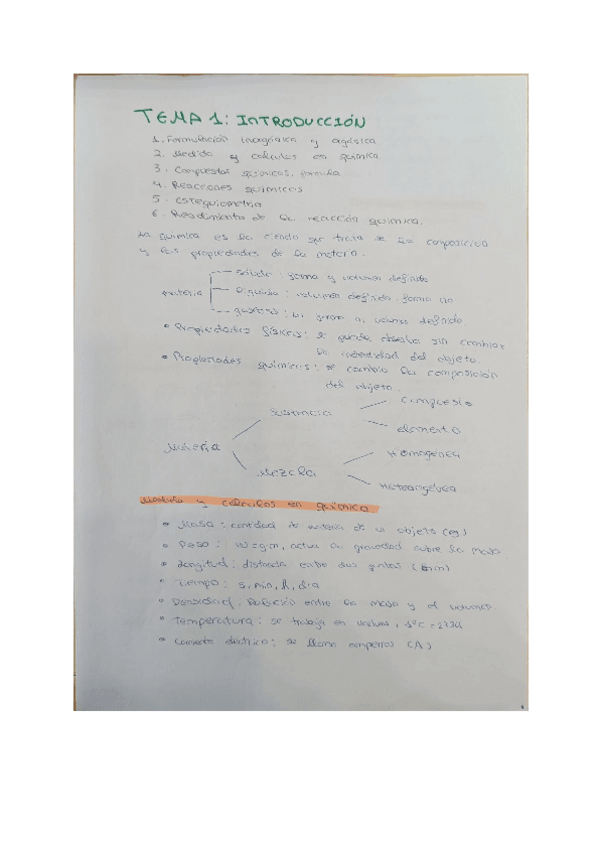 TEMA 1: INTRODUCCIÓN
1. Formulación inorgánica y orgánica
2. Medida y calculos en química
3. Compuestos químicos, formula
4. Reacciones químicas
5. estequiometria
6. Rendimiento de la reacción química.
La química es la ciencia que trata de la composición
y las propiedades de la materia.
materia
sólido: forma y volumen definido
líquido: volumen definido forma no
gaseoso: ni forma ni volumen definido
Propiedades físicas: se puede observar sin cambiar
la identidad del objeto.
Propiedades químicas: se cambia la composición
del objeto.
Materia
Sustancia
Compuesto
elemento
Mezcla
Homogénea
Heterogénea
Medida y calculos en química
Masa: cantidad de materia de un objeto (kg)
Peso: w=g.m, actua la gravedad sobre la masa
Longitud: distancia entre dos puntos
Tiempo: s, min, h, día
Densidad: Relación entre la masa y el volumen.
Temperatura: se trabaja en kelvins, 1°C =
Corriente electrico: se llama amperios (A)